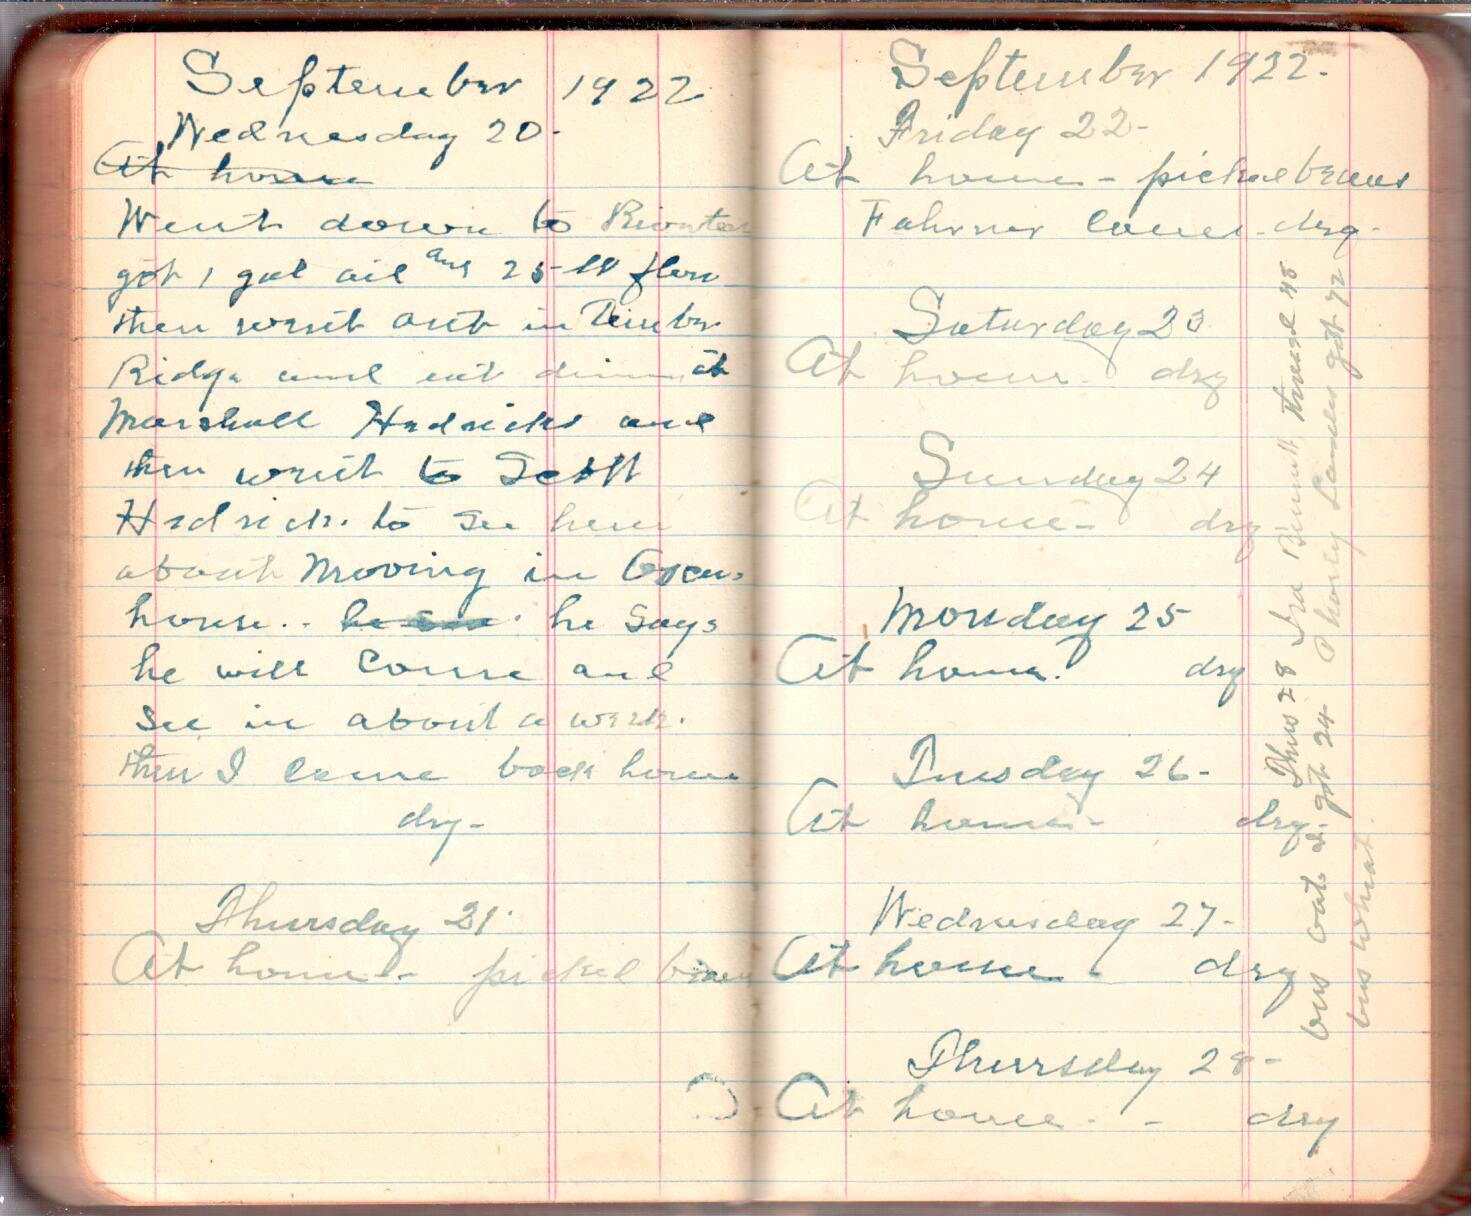 September 1922
Wednesday 20-
At home
Went down to
got 1 gal oil and 25-lb flour
then went out in Timber
Ridge and eat dinner at
Marshall Hedricks and
then went to Scott
Hedrick. to see him
about moving in
house.. he says
he will come and
see in about a week.
then I come back home
dry-
Thursday 21.
At home- picked beans
September 1922.
Friday 22-
At home- picked beans
Fahrner dry-
Saturday 23
At home- dry
Sunday 24
At home- dry
Monday 25
At home. dry
Tuesday 26-
At home- dry
Wednesday 27-
At home- dry
Thursday 28-
At home- - dry
Thus 28 Ira Bennett thrused 48
bus oats & got 24 got 72
bus wheat.